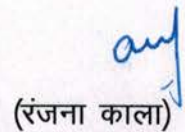 (रंजना काला)